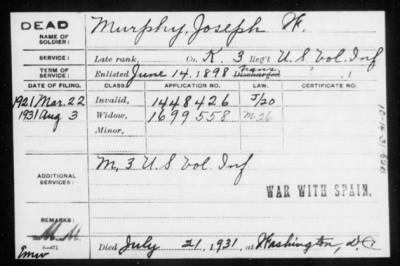 DEAD
NAME OF SOLDIER: Murphy, Joseph W.
SERVICE: Late rank, Co. K. 3 Reg't U.S. Vol. Inf
TERM OF SERVICE: Enlisted June 14, 1898 Trans Discharged , 1
DATE OF FILING. CLASS. APPLICATION NO. LAW. CERTIFICATE NO.
1921 Mar. 22 Invalid, 1448426 J/20
1931 Aug 3 Widow, 1699558 M-26
Minor,
ADDITIONAL SERVICES: M, 3 U.S Vol. Inf
WAR WITH SPAIN.
REMARKS:
M. M.
Died July 21, 1931, at Washington, D.C.